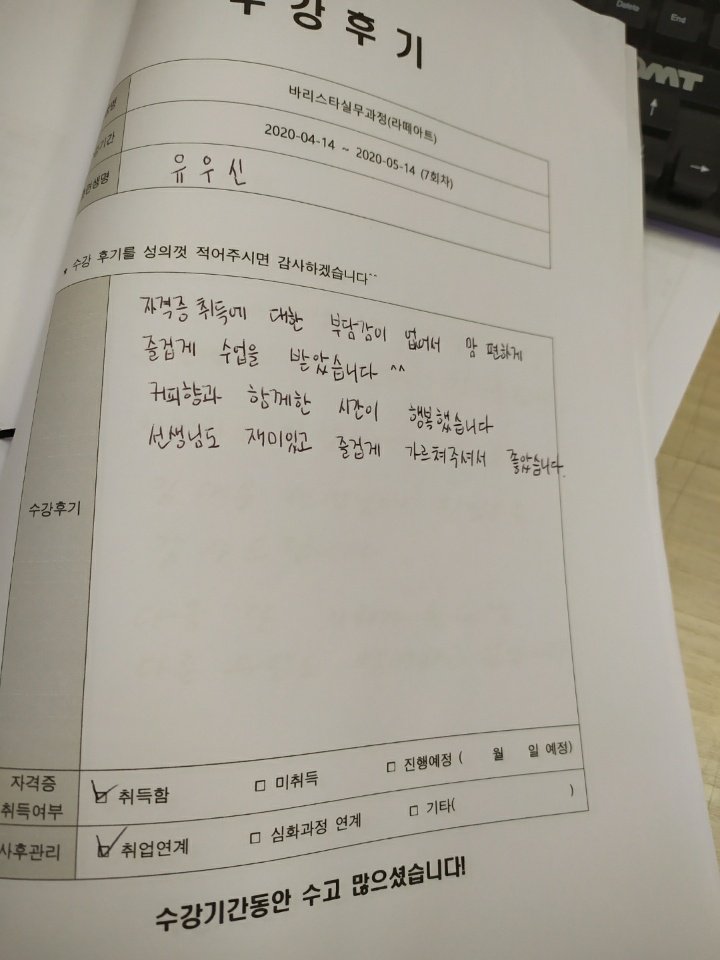 수강후기
바리스타실무과정(라떼아트)
기간 2020-04-14 ~ 2020-05-14 (7회차)
유우신
수강 후기를 성의껏 적어주시면 감사하겠습니다^^
자격증 취득에 대한 부담감이 없어서 맘 편하게
즐겁게 수업을 받았습니다 ^^
커피향과 함께한 시간이 행복했습니다
선생님도 재미있고 즐겁게 가르쳐주셔서 좋았습니다.
수강후기
자격증
취득여부
취득함 미취득 진행예정 ( 월 일 예정)
사후관리 취업연계 심화과정 연계 기타( )
수강기간동안 수고 많으셨습니다!
Delete
End